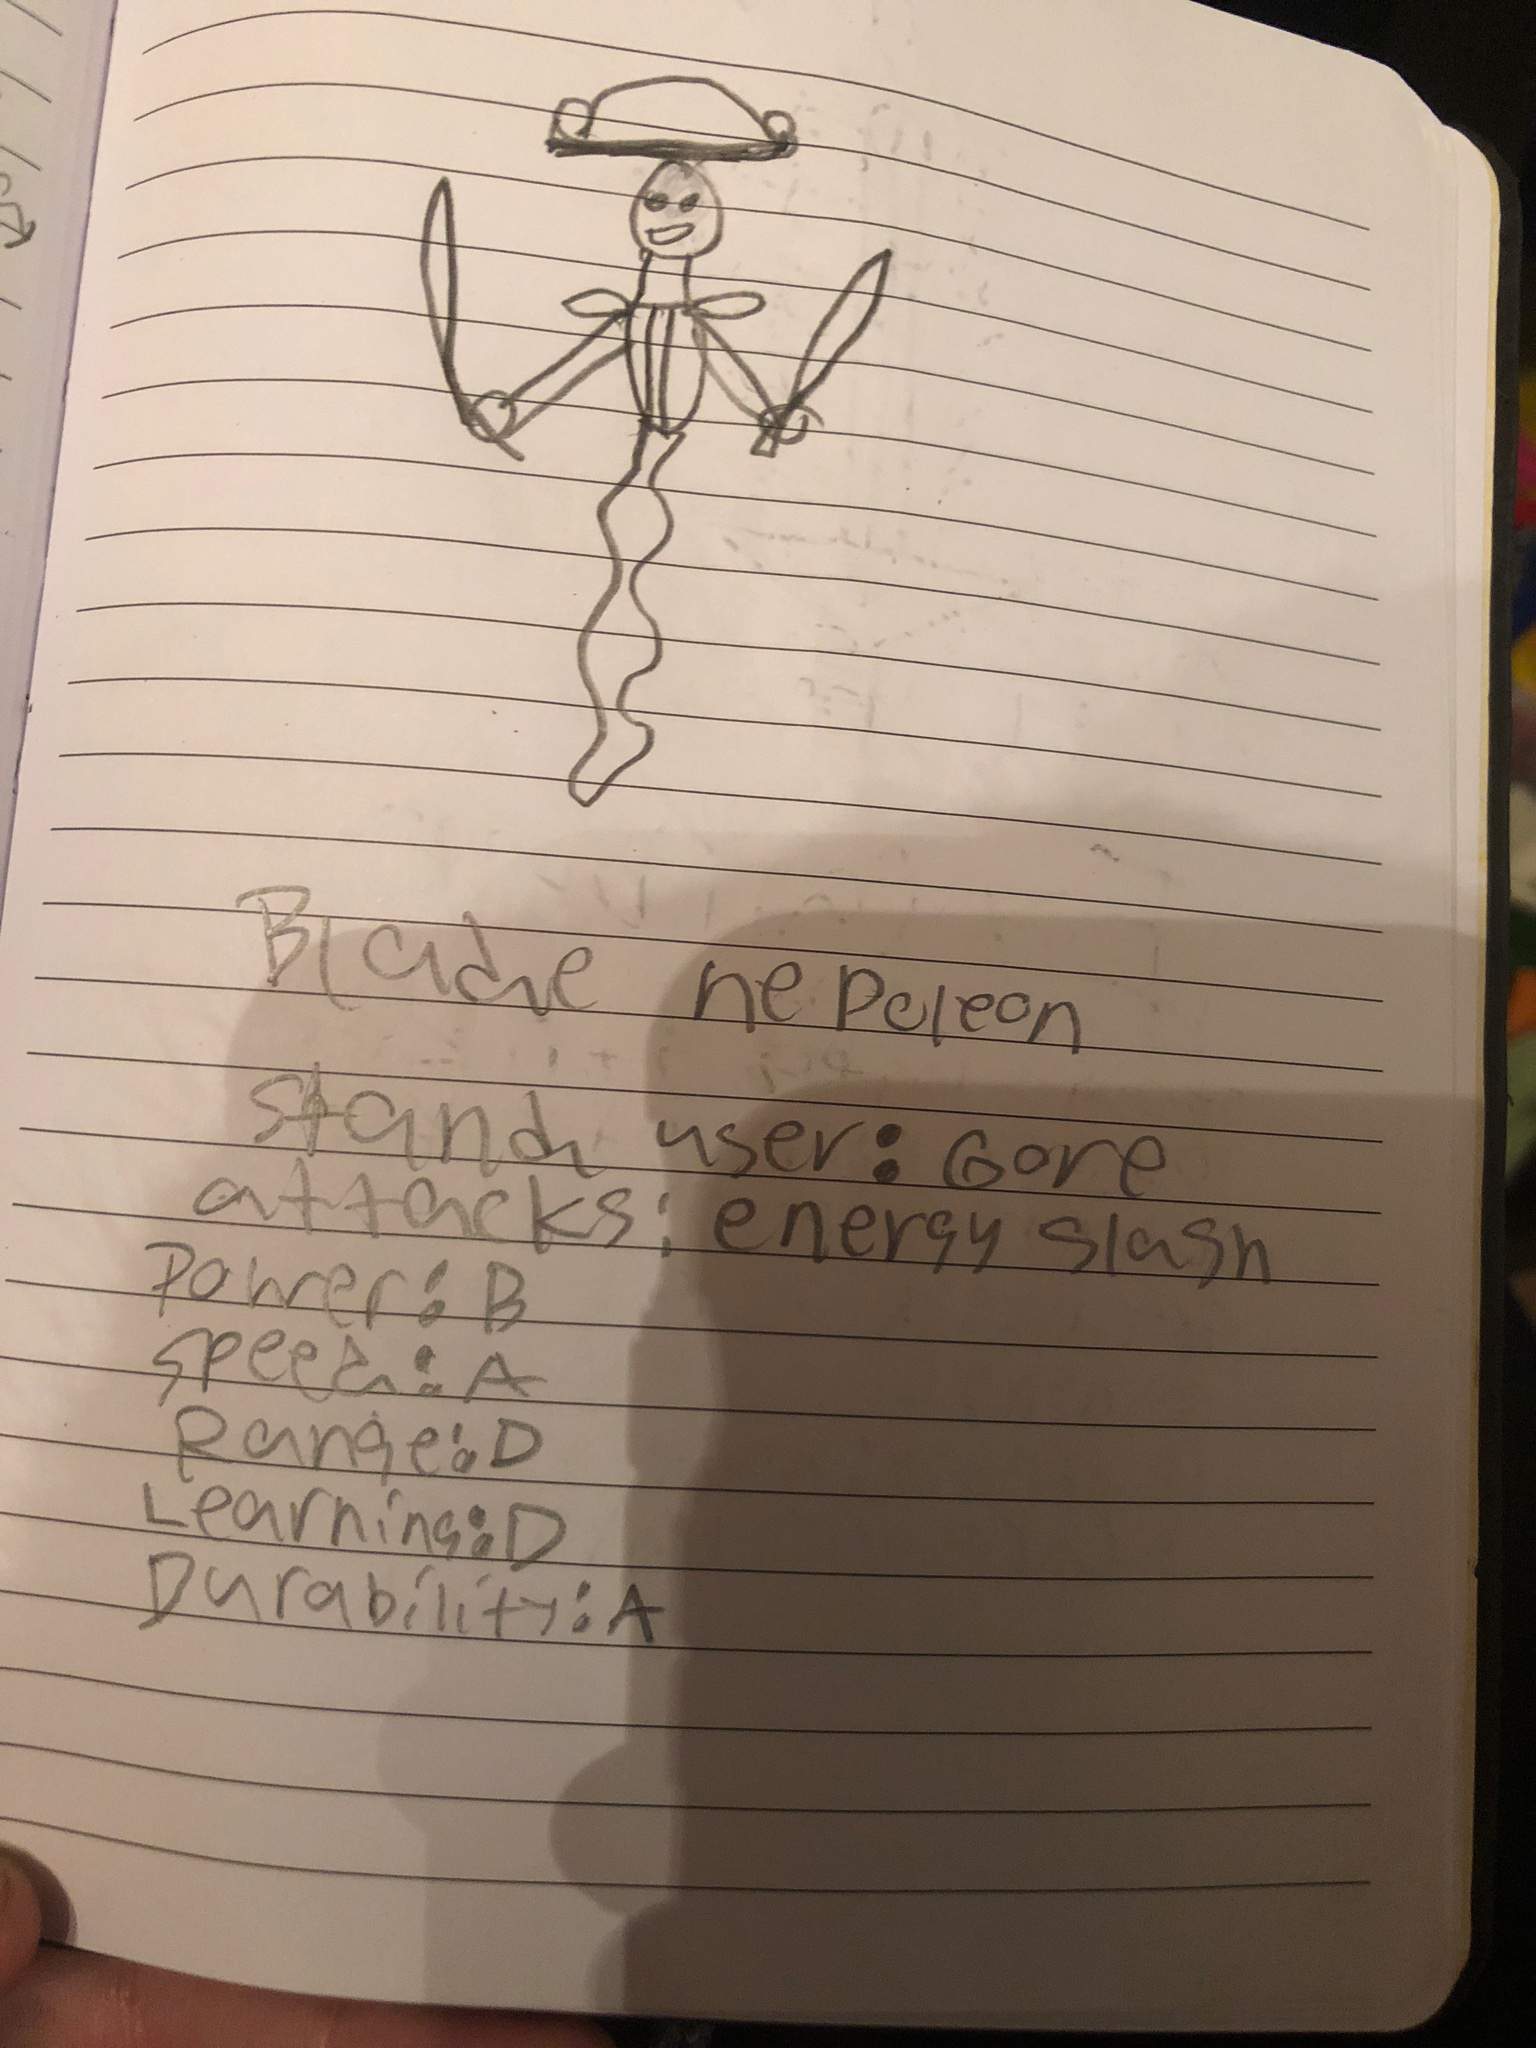 Blade nepoleon
stand user: Gore
attacks: energy slash
Power: B
speed: A
Range: D
Learning: D
Durability: A